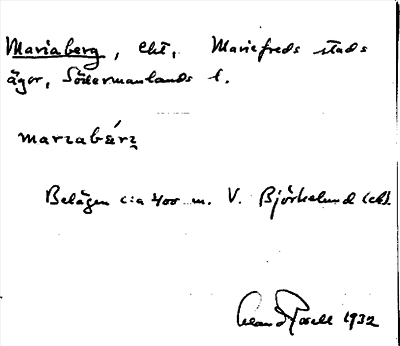 Mariaberg, lht, Mariefreds stads
ägor, Södermanlands l.
marɩabǽrʒ
Belägen c:a 400 m. V. Björkelund lht.
1932